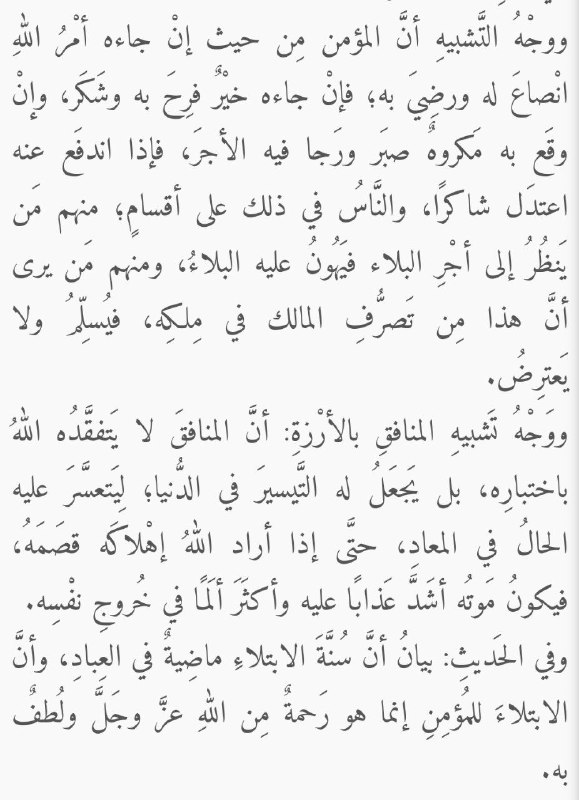 ووَجْهُ التَّشبيهِ أنَّ المؤمن مِن حيث إنْ جاءه أمْرُ اللهِ
انْصاعَ له ورضِيَ به؛ فإنْ جاءه خيْرٌ فرِحَ به وشَكَر، وإنْ
وقَع به مَكروهٌ صبَر ورَجا فيه الأجرَ، فإذا اندفَع عنه
اعتدَل شاكرًا، والنَّاسُ في ذلك على أقسامٍ؛ منهم مَن
يَنظُرُ إلى أجْرِ البلاء فيَهُونُ عليه البلاءُ، ومنهم مَن يرى
أنَّ هذا مِن تَصرُّفِ المالك في مِلكِه، فيُسلِّمُ ولا
يَعترِضُ.
ووَجْهُ تَشبيهِ المنافقِ بالأرْزةِ: أنَّ المنافقَ لا يَتفقَّدُه اللهُ
باختبارِه، بل يَجعَلُ له التَّيسيرَ في الدُّنيا؛ لِيَتعسَّرَ عليه
الحالُ في المعادِ، حتَّى إذا أراد اللهُ إهْلاكَه قصَمَهُ،
فيكونُ مَوتُه أشَدَّ عَذابًا عليه وأكثَرَ ألَمًا في خُروجِ نفْسِه.
وفي الحَديثِ: بيانُ أنَّ سُنَّةَ الابتلاءِ ماضِيةٌ في العِبادِ، وأنَّ
الابتلاءَ للمُؤمِنِ إنما هو رَحمةٌ مِن اللهِ عزَّ وجَلَّ ولُطفٌ
به.